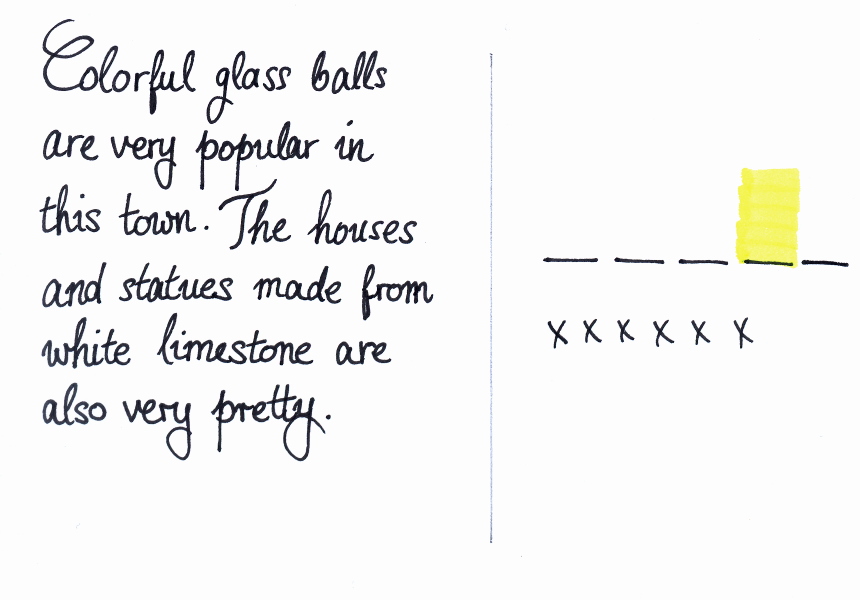 Colorful glass balls
are very popular in
this town. The houses
and statues made from
white limestone are
also very pretty.
_ _ _ _ _
x x x x x x